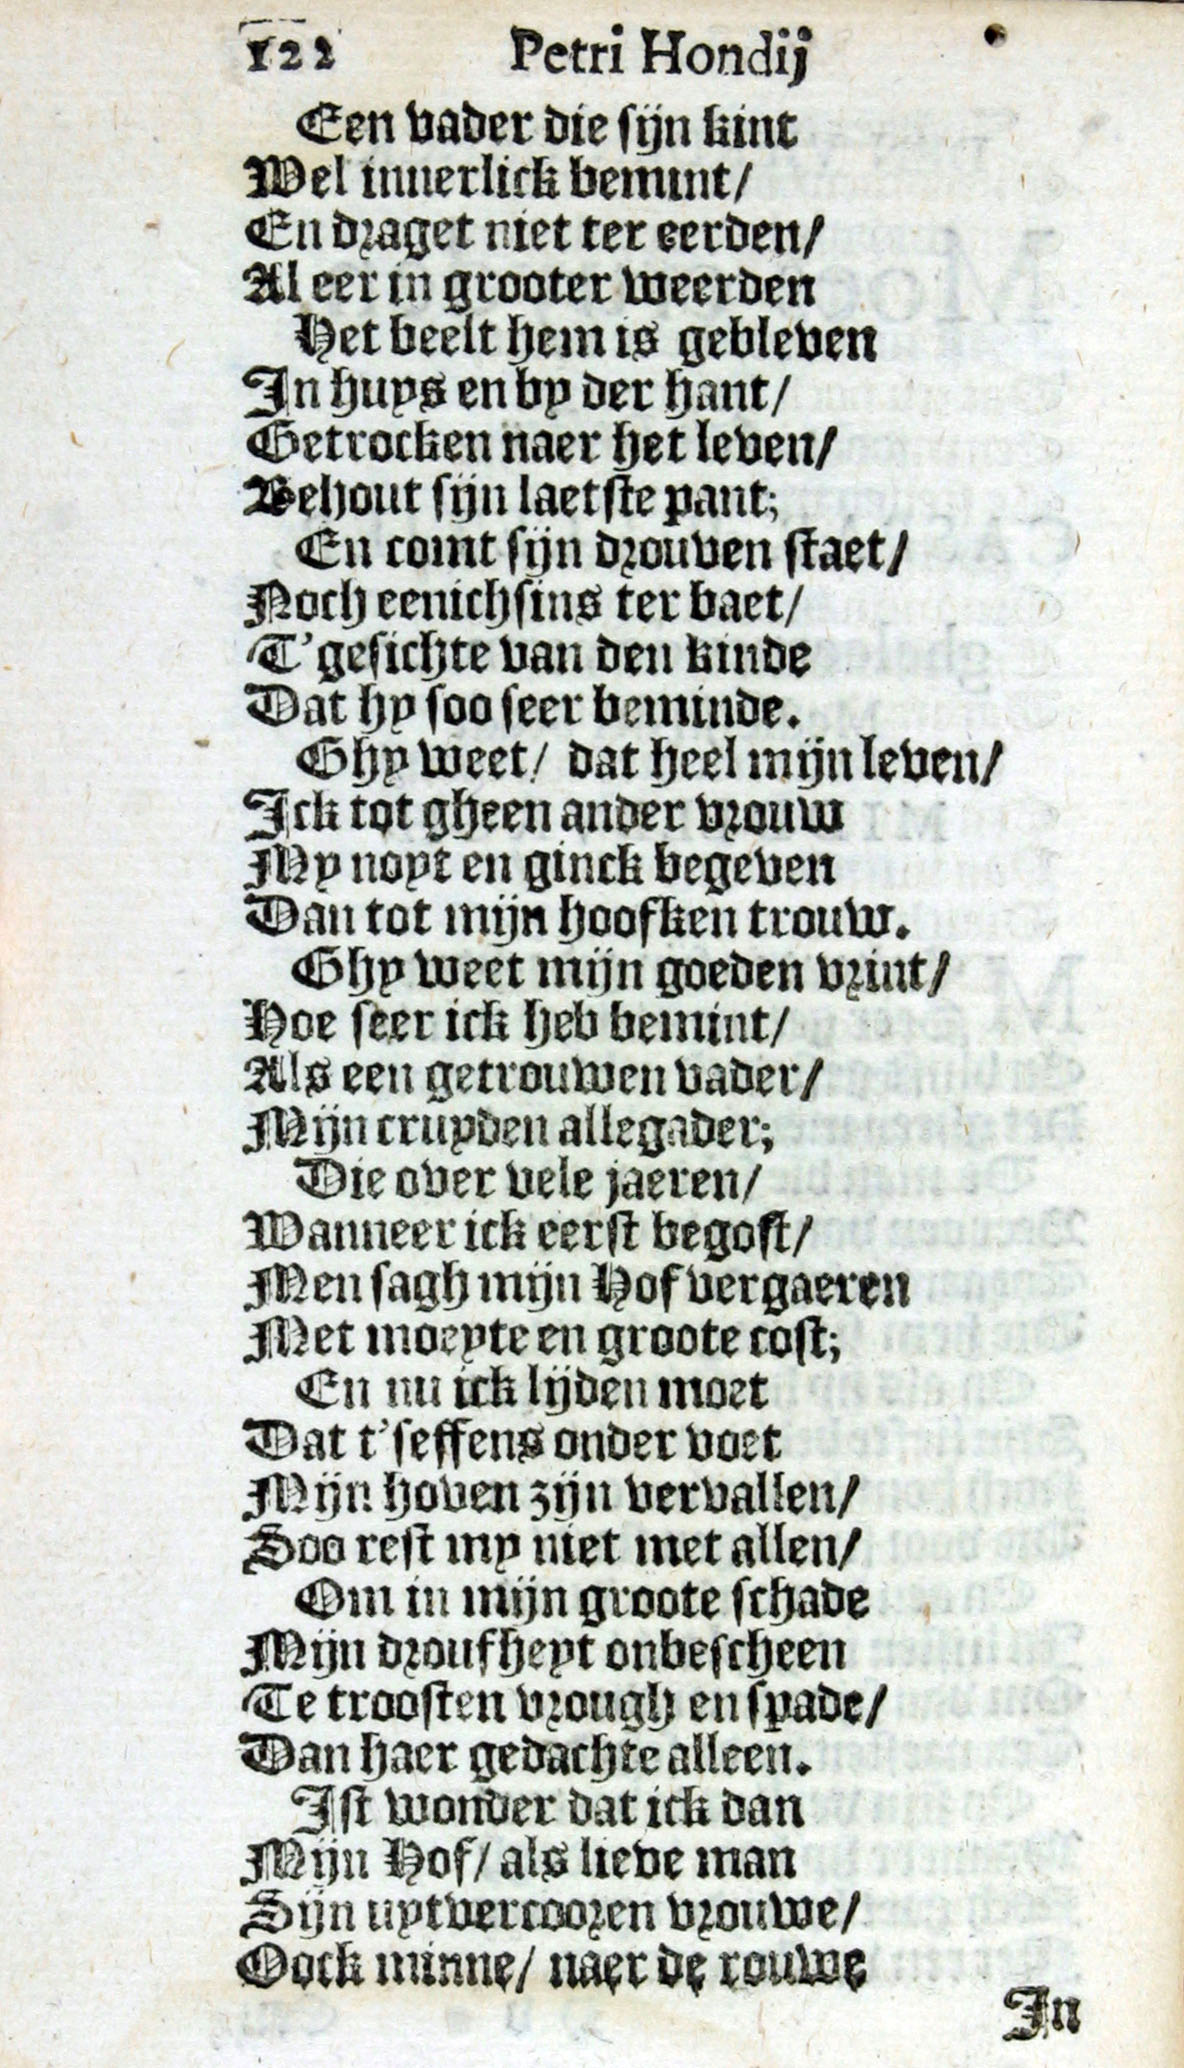 122 Petri Hondij
Een vader die sijn kint
Wel innerlick bemint/
En draget niet ter eerden/
Al eer in grooter weerden
Het beelt hem is gebleven
In huys en by der hant/
Getrocken naer het leven/
Behout sijn laetste pant;
En comt sijn drouven staet/
Noch eenichsins ter baet/
T'gesichte van den kinde
Dat hy soo seer beminde.
Ghy weet/ dat heel mijn leven/
Ick tot gheen ander vrouw
My noyt en ginck begeven
Dan tot mijn hoofken trouw.
Ghy weet mijn goeden vrint/
Hoe seer ick heb bemint/
Als een getrouwen vader/
Mijn cruyden allegader;
Die over vele jaeren/
Wanneer ick eerst begost/
Men sagh mijn Hof vergaeren
Met moeyte en groote cost;
En nu ick lijden moet
Dat t'seffens onder voet
Mijn hoven zijn vervallen/
Soo rest my niet met allen/
Om in mijn groote schade
Mijn droufheyt onbescheen
Te troosten vrough en spade/
Dan haer gedachte alleen.
Ist wonder dat ick dan
Mijn Hof/ als lieve man
Sijn uytvercooren vrouwe/
Oock minne/ naer de rouwe
In